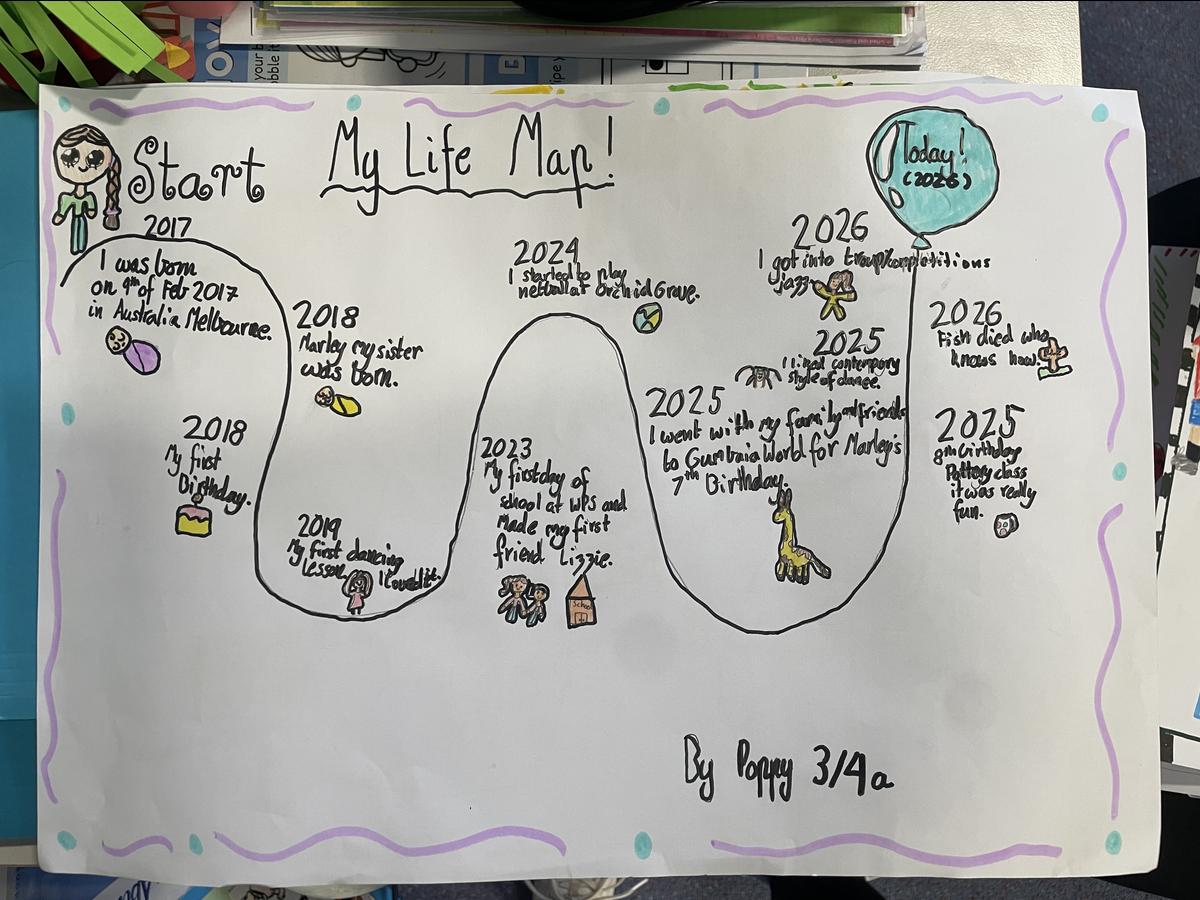 My Life Map!
Start
2017
I was born
on 9th of Feb 2017
in Australia Melbourne.
2018
My first
Birthday.
2018
Marley my sister
was born.
2019
My first dancing
lesson. I loved it.
2023
My first day of
school at WPS and
Made my first
friend Lizzie.
School
2024
I started to play
netball at Orchid Grove.
2025
I went with my family and friends
to Gumbaia World for Marley's
7th Birthday.
2025
I liked contempory
style of dance.
2026
I got into troup/competitions
jazz
2025
8th birthday
Pottery class
it was really
fun.
2026
Fish died who
knows how.
Today!
(2026)
By Poppy 3/4a